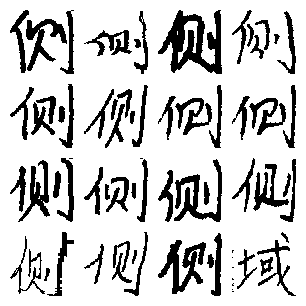 侧侧侧侧
侧侧侧侧
侧侧侧侧
侧侧侧域